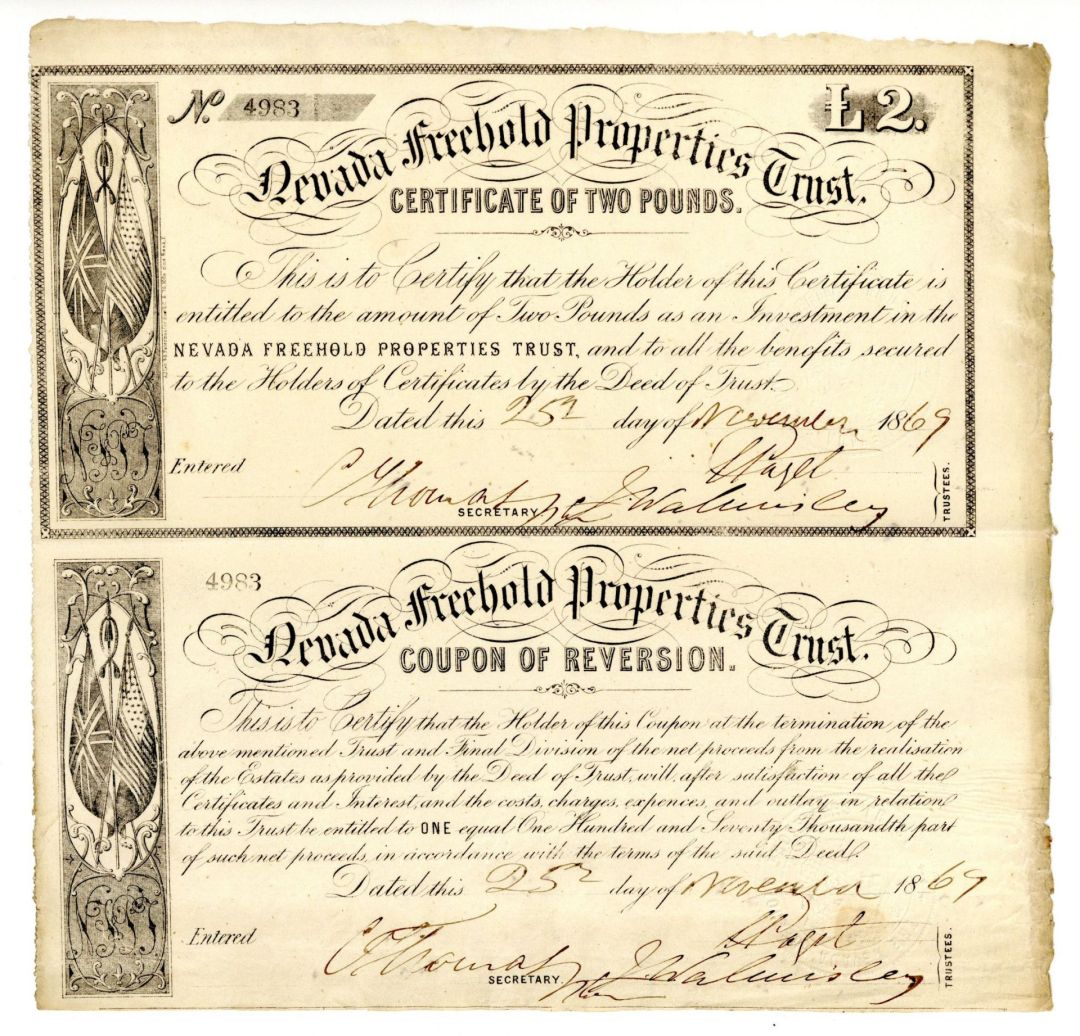 No. 4983
£2.
Nevada Freehold Properties Trust.
CERTIFICATE OF TWO POUNDS.
This is to Certify that the Holder of this Certificate is
entitled to the amount of Two Pounds as an Investment in the
NEVADA FREEHOLD PROPERTIES TRUST, and to all the benefits secured
to the Holders of Certificates by the Deed of Trust.
Dated this 25th day of November 1869
Entered
C Thomas
SECRETARY
S Paget
J. Walmsley
TRUSTEES.
NFPT
4983
Nevada Freehold Properties Trust.
COUPON OF REVERSION.
This is to Certify that the Holder of this Coupon at the termination of the
above mentioned Trust and Final Division of the net proceeds from the realisation
of the Estates as provided by the Deed of Trust, will, after satisfaction of all the
Certificates and Interest, and the costs, charges, expences, and outlay in relation
to this Trust be entitled to ONE equal One Hundred and Seventy Thousandth part
of such net proceeds, in accordance with the terms of the said Deed.
Dated this 25th day of November 1869
Entered
C Thomas
SECRETARY.
S Paget
J. Walmsley
TRUSTEES.
NFPT